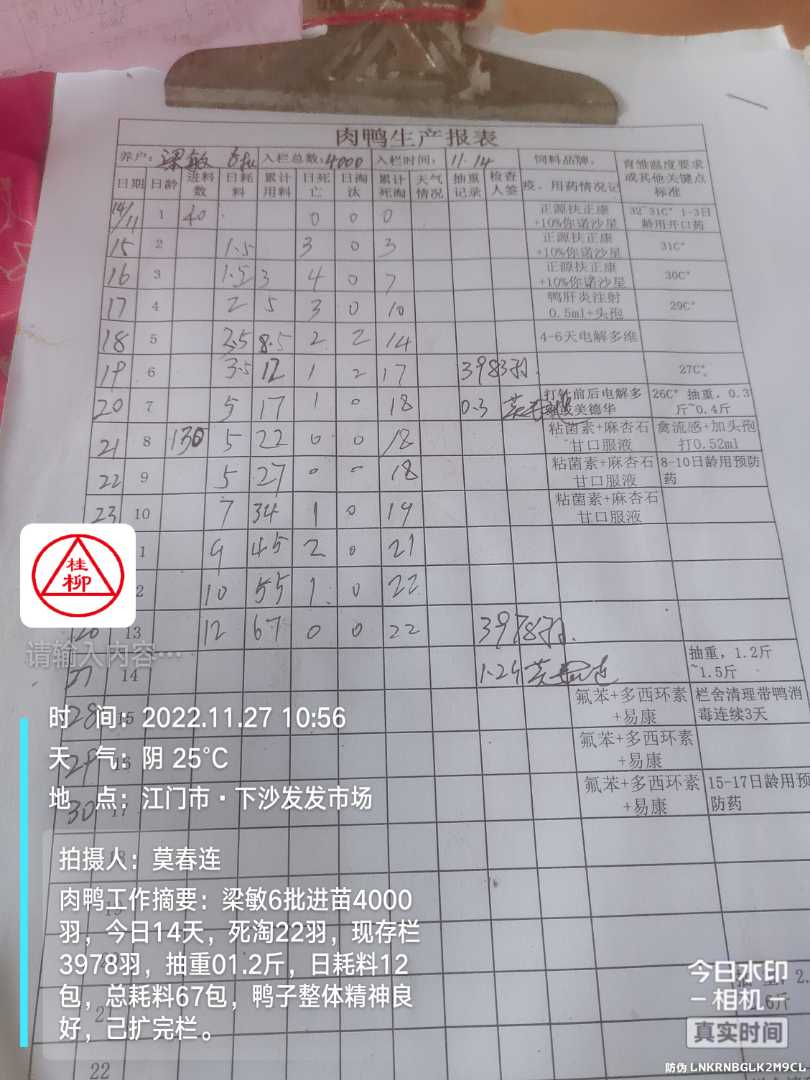 肉鸭生产报表
养户: 梁敏 6批 入栏总数: 4000 入栏时间: 11.14 饲料品牌, 育雏温度要求
日期 日龄 进料数 日耗料 累计用料 日死亡 日淘汰 累计死淘 天气情况 抽重记录 检查人签 疫、用药情况记 或其他关键点标准
14/11 1 40 0 0 0 正源扶正康+10%你诺沙星 32~31C° 1-3日龄用开口药
15 2 1.5 3 0 3 正源扶正康+10%你诺沙星 31C°
16 3 1.5 3 4 0 7 正源扶正康+10%你诺沙星 30C°
17 4 2 5 3 0 10 鸭肝炎注射0.5ml+头孢 29C°
18 5 3.5 8.5 2 2 14 4-6天电解多维
19 6 3.5 12 1 2 17 3983羽. 27C°
20 7 5 17 1 0 18 0.3 打针前后电解多 美德华 26C° 抽重, 0.3斤~0.4斤
21 8 130 5 22 0 0 18 粘菌素+麻杏石甘口服液 禽流感+加头孢打0.52ml
22 9 5 27 0 0 18 粘菌素+麻杏石甘口服液 8-10日龄用预防药
23 10 7 34 1 0 19 粘菌素+麻杏石甘口服液
1 9 45 2 0 21
2 10 55 1 0 22
13 12 67 0 0 22 3978羽.
14 1.24 抽重, 1.2斤~1.5斤
28 15 氟苯+多西环素+易康 栏舍清理带鸭消毒连续3天
29 16 氟苯+多西环素+易康
30 17 氟苯+多西环素+易康 15-17日龄用预防药
21
22
桂柳
请输入内容…
时 间: 2022.11.27 10:56
天 气: 阴 25℃
地 点: 江门市·下沙发发市场
拍摄人: 莫春连
肉鸭工作摘要: 梁敏6批进苗4000
羽，今日14天，死淘22羽，现存栏
3978羽，抽重01.2斤，日耗料12
包，总耗料67包，鸭子整体精神良
好，己扩完栏。
今日水印
相机
真实时间
防伪 LNKRNBGLK2M9CL